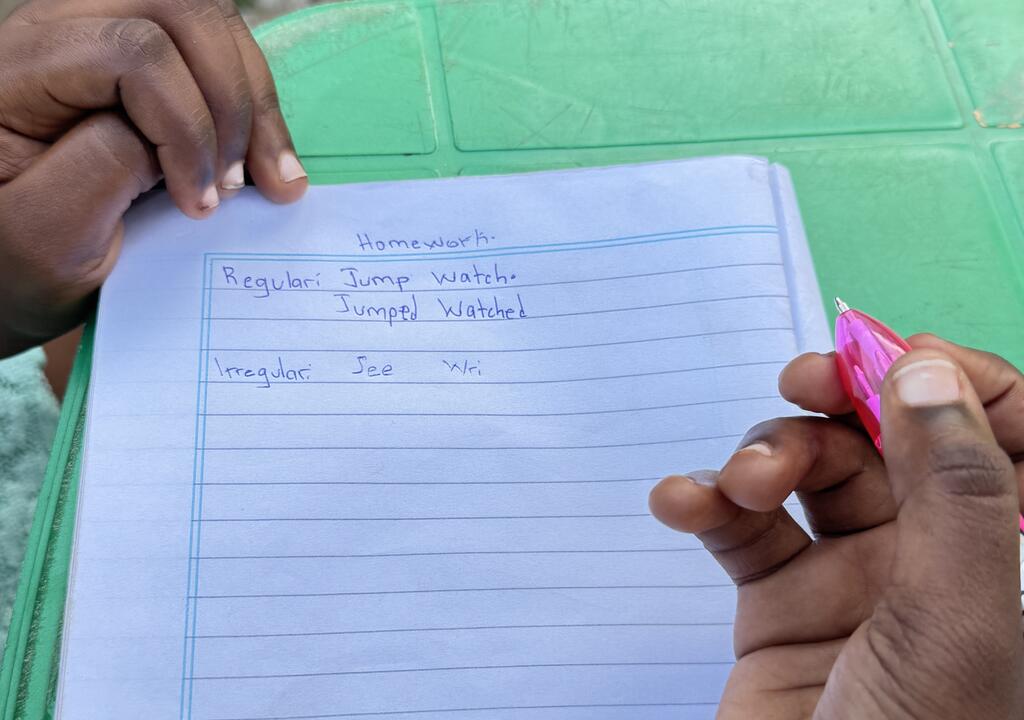 Homework.
Regular: Jump Watch.
Jumped Watched
Irregular: See Wri